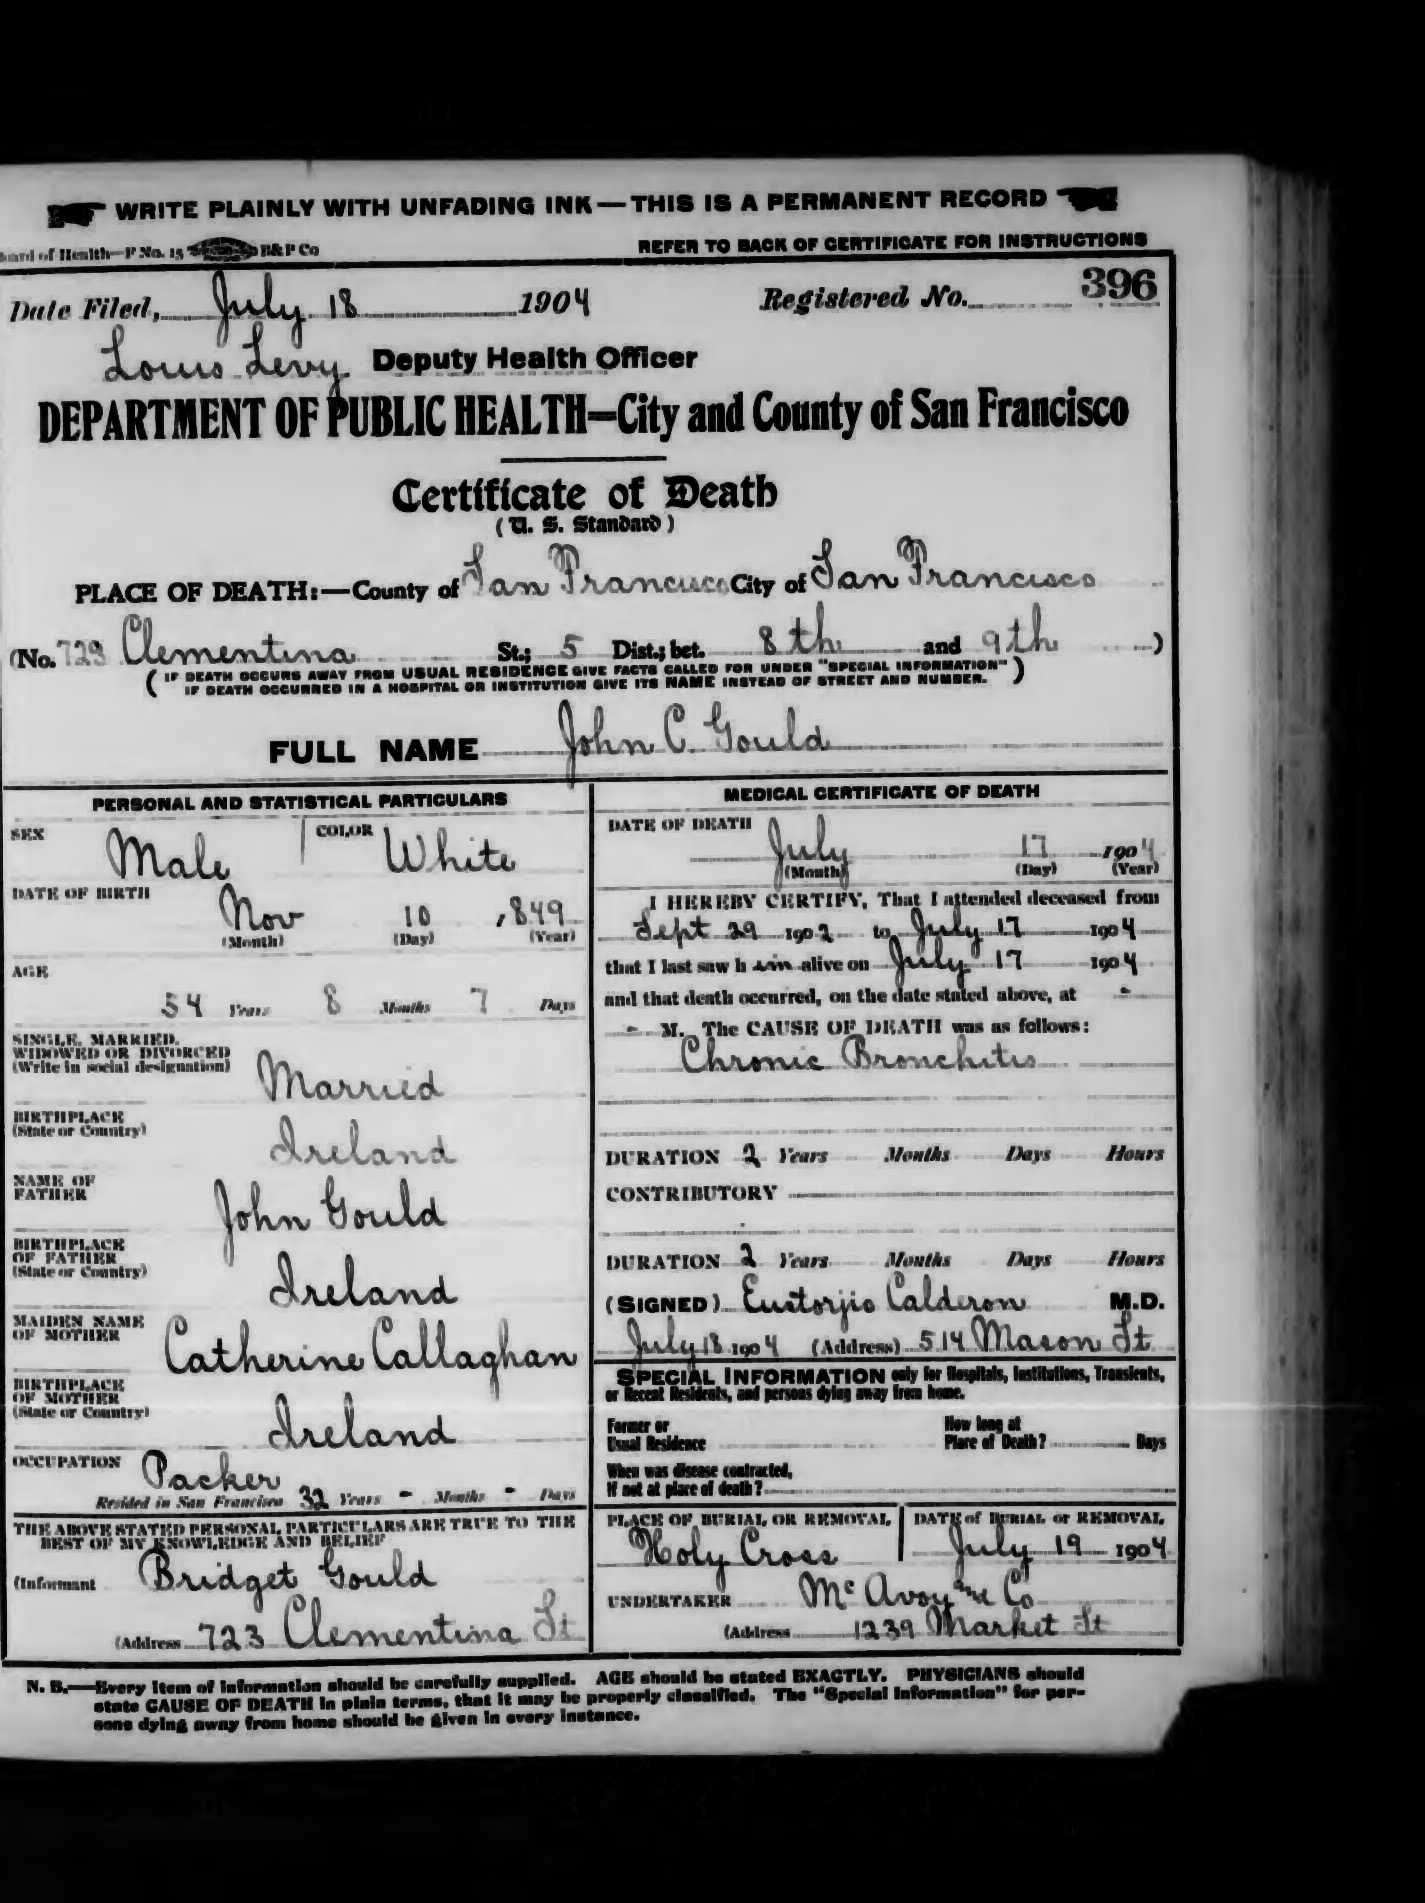 WRITE PLAINLY WITH UNFADING INK—THIS IS A PERMANENT RECORD
of Health—F No. 15 B&P Co
REFER TO BACK OF CERTIFICATE FOR INSTRUCTIONS
Date Filed, July 18 1904 Registered No. 396
Louis Levy Deputy Health Officer
DEPARTMENT OF PUBLIC HEALTH=City and County of San Francisco
Certificate of Death
(U. S. Standard)
PLACE OF DEATH:—County of San Francisco City of San Francisco
(No. 723 Clementina St.; 5 Dist.; bet. 8th and 9th )
( IF DEATH OCCURS AWAY FROM USUAL RESIDENCE GIVE FACTS CALLED FOR UNDER "SPECIAL INFORMATION" )
IF DEATH OCCURRED IN A HOSPITAL OR INSTITUTION GIVE ITS NAME INSTEAD OF STREET AND NUMBER.
FULL NAME John C. Gould
PERSONAL AND STATISTICAL PARTICULARS
SEX Male COLOR White
DATE OF BIRTH
Nov 10 1849
(Month) (Day) (Year)
AGE
54 Years 8 Months 7 Days
SINGLE, MARRIED,
WIDOWED OR DIVORCED
(Write in social designation)
Married
BIRTHPLACE
(State or Country)
Ireland
NAME OF
FATHER
John Gould
BIRTHPLACE
OF FATHER
(State or Country)
Ireland
MAIDEN NAME
OF MOTHER
Catherine Callaghan
BIRTHPLACE
OF MOTHER
(State or Country)
Ireland
OCCUPATION Packer
Resided in San Francisco 32 Years - Months - Days
THE ABOVE STATED PERSONAL PARTICULARS ARE TRUE TO THE
BEST OF MY KNOWLEDGE AND BELIEF
(Informant Bridget Gould
(Address 723 Clementina St
MEDICAL CERTIFICATE OF DEATH
DATE OF DEATH
July 17 1904
(Month) (Day) (Year)
I HEREBY CERTIFY, That I attended deceased from
Sept 29 1902 to July 17 1904
that I last saw h im alive on July 17 1904
and that death occurred, on the date stated above, at -
- M. The CAUSE OF DEATH was as follows:
Chronic Bronchitis
DURATION 2 Years Months Days Hours
CONTRIBUTORY
DURATION 2 Years Months Days Hours
(SIGNED) Eustorjio Calderon M.D.
July 18 1904 (Address) 514 Mason St
SPECIAL INFORMATION only for Hospitals, Institutions, Transients,
or Recent Residents, and persons dying away from home.
Former or
Usual Residence
How long at
Place of Death? Days
When was disease contracted,
If not at place of death?
PLACE OF BURIAL OR REMOVAL
Holy Cross
DATE of BURIAL or REMOVAL
July 19 1904
UNDERTAKER McAvoy and Co
(Address 1239 Market St
N. B.—Every item of information should be carefully supplied. AGE should be stated EXACTLY. PHYSICIANS should
state CAUSE OF DEATH in plain terms, that it may be properly classified. The "Special Information" for per-
sons dying away from home should be given in every instance.